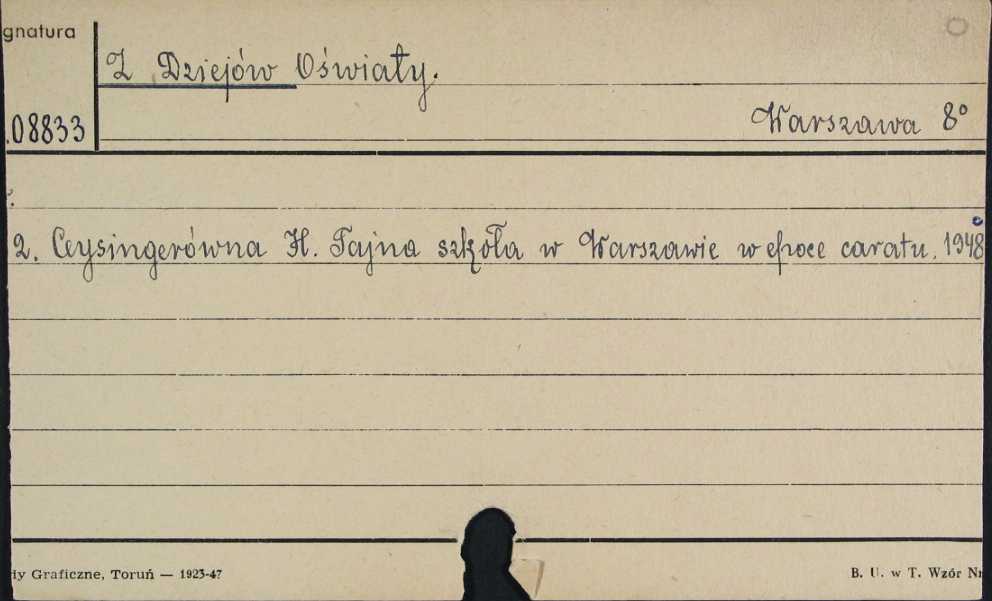 gnatura
Z Dziejów Oświaty.
.08833
Warszawa 8°
2. Ceysingerówna H. Tajna szkoła w Warszawie w epoce caratu. 1948
dy Graficzne, Toruń — 1923-47
B. U. w T. Wzór Nr